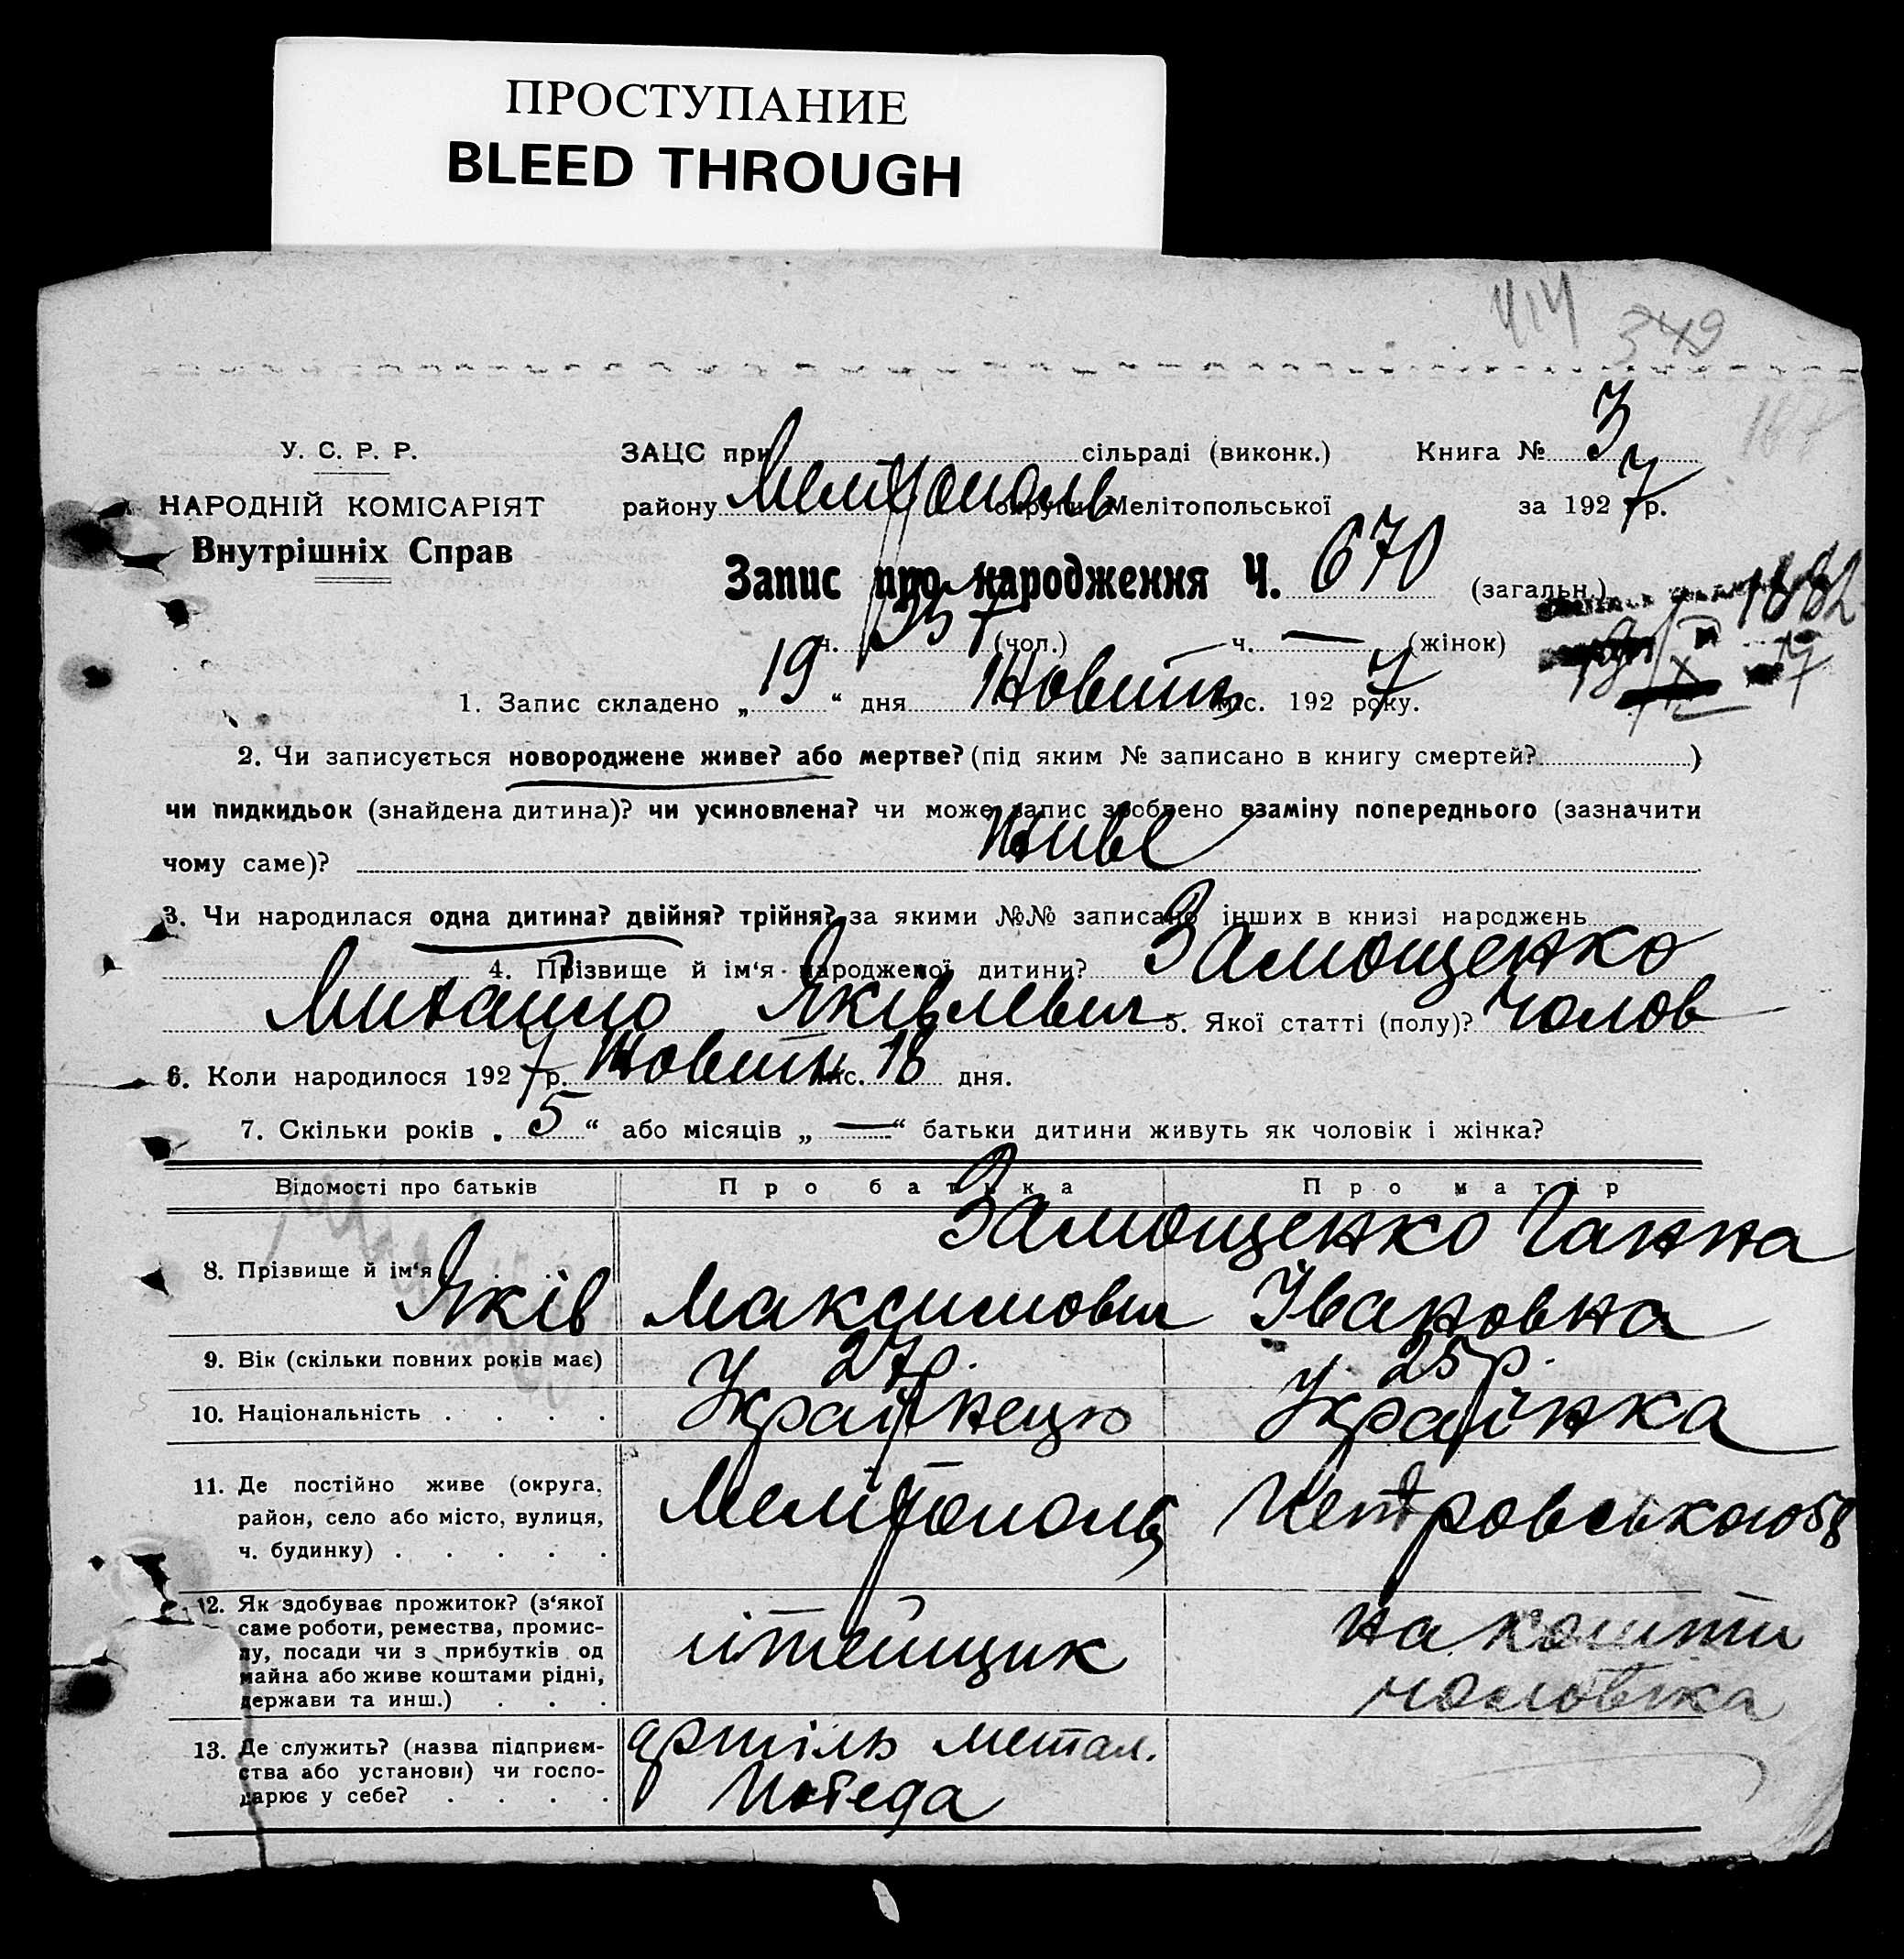 ПРОСТУПАНИЕ
BLEED THROUGH
414 349
187
У. С. Р. Р.
НАРОДНІЙ КОМІСАРІЯТ
Внутрішніх Справ
ЗАЦС при сільраді (виконк.) Книга № 3
району Мелітополь округи Мелітопольської за 1927 р.
Запис про народження Ч. 670 (загальн.)
1882
ч. (чол.) ч. — (жінок)
1. Запис складено „19“ дня Жовтн міс. 1927 року.
2. Чи записується новороджене живе? або мертве? (під яким № записано в книгу смертей? )
чи пидкидьок (знайдена дитина)? чи усиновлена? чи може запис зроблено взаміну попереднього (зазначити
чому саме)? живе
3. Чи народилася одна дитина? двійня? трійня? за якими №№ записано інших в книзі народжень
4. Прізвище й ім‘я народженої дитини? Замощенко
Михайло Яківлевич 5. Якої статті (полу)? чолов
6. Коли народилося 1927 р. Жовтн міс. 18 дня.
7. Скільки років „5“ або місяців „—“ батьки дитини живуть як чоловік і жінка?
Відомості про батьків Про батька Про матір
Замощенко Ганна
8. Прізвище й ім‘я Яків Максимович Івановна
9. Вік (скільки повних років має) 27 р. 25 р.
10. Національність . . . . Українець Українка
11. Де постійно живе (округа,
район, село або місто, вулиця, Мелітополь Петровською 58
ч. будинку) . . . . .
12. Як здобуває прожиток? (з‘якої
саме роботи, ремества, промис-
лу, посади чи з прибутків од
майна або живе коштами рідні,
держави та инш.) . . .
літейщик на кошти
чоловіка
13. Де служить? (назва підприєм-
ства або установи) чи госпо-
дарює у себе? . . . .
артіль метал.
Победа